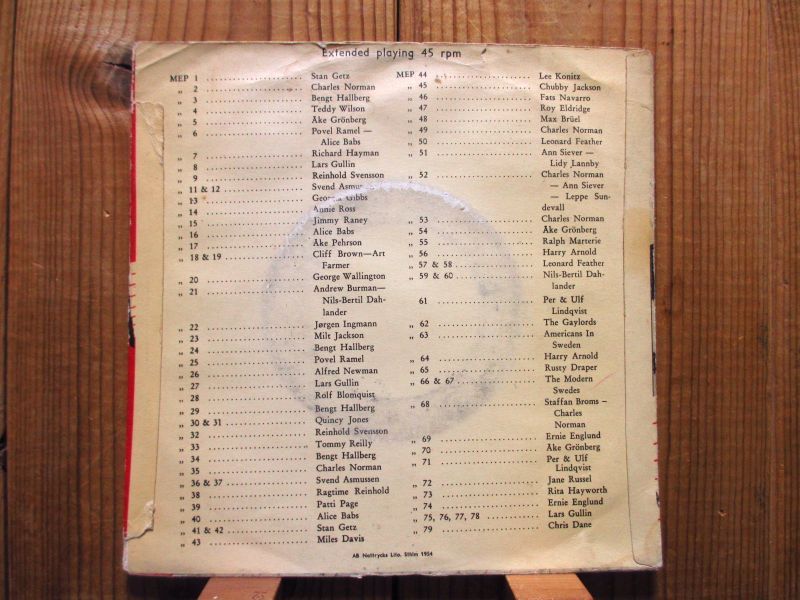 Extended playing 45 rpm
MEP 1 .................... Stan Getz
„ 2 .................... Charles Norman
„ 3 .................... Bengt Hallberg
„ 4 .................... Teddy Wilson
„ 5 .................... Åke Grönberg
„ 6 .................... Povel Ramel —
Alice Babs
„ 7 .................... Richard Hayman
„ 8 .................... Lars Gullin
„ 9 .................... Reinhold Svensson
„ 11 & 12 .................... Svend Asmussen
„ 13 .................... Georgia Gibbs
„ 14 .................... Annie Ross
„ 15 .................... Jimmy Raney
„ 16 .................... Alice Babs
„ 17 .................... Åke Pehrson
„ 18 & 19 .................... Cliff Brown—Art
Farmer
„ 20 .................... George Wallington
„ 21 .................... Andrew Burman—
Nils-Bertil Dah-
lander
„ 22 .................... Jørgen Ingmann
„ 23 .................... Milt Jackson
„ 24 .................... Bengt Hallberg
„ 25 .................... Povel Ramel
„ 26 .................... Alfred Newman
„ 27 .................... Lars Gullin
„ 28 .................... Rolf Blomquist
„ 29 .................... Bengt Hallberg
„ 30 & 31 .................... Quincy Jones
„ 32 .................... Reinhold Svensson
„ 33 .................... Tommy Reilly
„ 34 .................... Bengt Hallberg
„ 35 .................... Charles Norman
„ 36 & 37 .................... Svend Asmussen
„ 38 .................... Ragtime Reinhold
„ 39 .................... Patti Page
„ 40 .................... Alice Babs
„ 41 & 42 .................... Stan Getz
„ 43 .................... Miles Davis
MEP 44 .................... Lee Konitz
„ 45 .................... Chubby Jackson
„ 46 .................... Fats Navarro
„ 47 .................... Roy Eldridge
„ 48 .................... Max Brüel
„ 49 .................... Charles Norman
„ 50 .................... Leonard Feather
„ 51 .................... Ann Siever —
Lidy Lannby
„ 52 .................... Charles Norman
— Ann Siever
— Leppe Sun-
devall
„ 53 .................... Charles Norman
„ 54 .................... Åke Grönberg
„ 55 .................... Ralph Marterie
„ 56 .................... Harry Arnold
„ 57 & 58 .................... Leonard Feather
„ 59 & 60 .................... Nils-Bertil Dah-
lander
61 .................... Per & Ulf
Lindqvist
„ 62 .................... The Gaylords
„ 63 .................... Americans In
Sweden
„ 64 .................... Harry Arnold
„ 65 .................... Rusty Draper
„ 66 & 67 .................... The Modern
Swedes
„ 68 .................... Staffan Broms –
Charles
Norman
„ 69 .................... Ernie Englund
„ 70 .................... Åke Grönberg
„ 71 .................... Per & Ulf
Lindqvist
„ 72 .................... Jane Russel
„ 73 .................... Rita Hayworth
„ 74 .................... Ernie Englund
„ 75, 76, 77, 78 .................... Lars Gullin
„ 79 .................... Chris Dane
AB Nottrycks Lito. Sthlm 1954